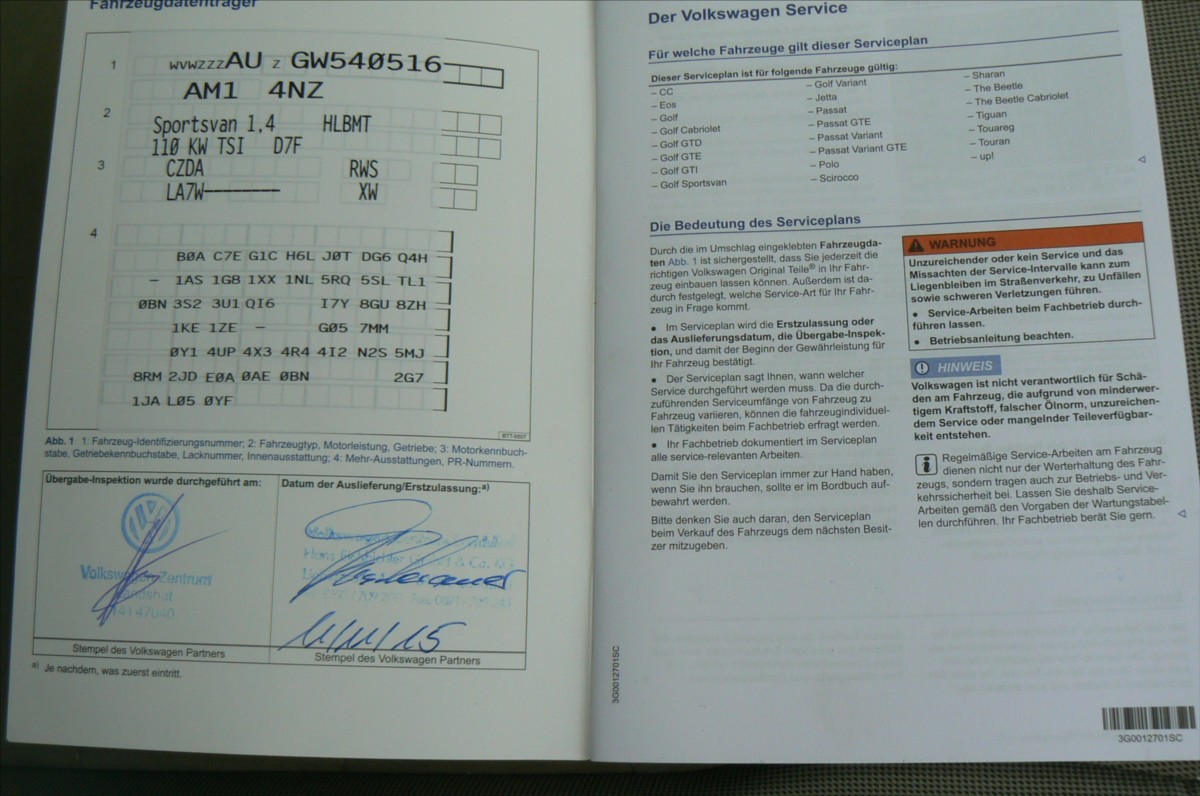 Fahrzeugdatenträger
1 WVWZZZAU Z GW540516
AM1 4NZ
2
Sportsvan 1,4 HLBMT
110 KW TSI D7F
3 CZDA RWS
LA7W XW
4
B0A C7E G1C H6L J0T DG6 Q4H
– 1AS 1G8 1XX 1NL 5RQ 5SL TL1
0BN 3S2 3U1 QI6 I7Y 8GU 8ZH
1KE 1ZE – G05 7MM
0Y1 4UP 4X3 4R4 4I2 N2S 5MJ
8RM 2JD E0A 0AE 0BN 2G7
1JA L05 0YF
Abb. 1 1: Fahrzeug-Identifizierungsnummer; 2: Fahrzeugtyp, Motorleistung, Getriebe; 3: Motorkennbuch-
stabe, Getriebekennbuchstabe, Lacknummer, Innenausstattung; 4: Mehr-Ausstattungen, PR-Nummern.
Übergabe-Inspektion wurde durchgeführt am:
Volkswagen Zentrum
Landshut
Stempel des Volkswagen Partners
Datum der Auslieferung/Erstzulassung:a)
11/11/15
Stempel des Volkswagen Partners
a) Je nachdem, was zuerst eintritt.
Der Volkswagen Service
Für welche Fahrzeuge gilt dieser Serviceplan
Dieser Serviceplan ist für folgende Fahrzeuge gültig:
– CC
– Eos
– Golf
– Golf Cabriolet
– Golf GTD
– Golf GTE
– Golf GTI
– Golf Sportsvan
– Golf Variant
– Jetta
– Passat
– Passat GTE
– Passat Variant
– Passat Variant GTE
– Polo
– Scirocco
– Sharan
– The Beetle
– The Beetle Cabriolet
– Tiguan
– Touareg
– Touran
– up!
Die Bedeutung des Serviceplans
Durch die im Umschlag eingeklebten Fahrzeugda-
ten Abb. 1 ist sichergestellt, dass Sie jederzeit die
richtigen Volkswagen Original Teile® in Ihr Fahr-
zeug einbauen lassen können. Außerdem ist da-
durch festgelegt, welche Service-Art für Ihr Fahr-
zeug in Frage kommt.
● Im Serviceplan wird die Erstzulassung oder
das Auslieferungsdatum, die Übergabe-Inspek-
tion, und damit der Beginn der Gewährleistung für
Ihr Fahrzeug bestätigt.
● Der Serviceplan sagt Ihnen, wann welcher
Service durchgeführt werden muss. Da die durch-
zuführenden Serviceumfänge von Fahrzeug zu
Fahrzeug variieren, können die fahrzeugindividuel-
len Tätigkeiten beim Fachbetrieb erfragt werden.
● Ihr Fachbetrieb dokumentiert im Serviceplan
alle service-relevanten Arbeiten.
Damit Sie den Serviceplan immer zur Hand haben,
wenn Sie ihn brauchen, sollte er im Bordbuch auf-
bewahrt werden.
Bitte denken Sie auch daran, den Serviceplan
beim Verkauf des Fahrzeugs dem nächsten Besit-
zer mitzugeben.
WARNUNG
Unzureichender oder kein Service und das
Missachten der Service-Intervalle kann zum
Liegenbleiben im Straßenverkehr, zu Unfällen
sowie schweren Verletzungen führen.
● Service-Arbeiten beim Fachbetrieb durch-
führen lassen.
● Betriebsanleitung beachten.
HINWEIS
Volkswagen ist nicht verantwortlich für Schä-
den am Fahrzeug, die aufgrund von minderwer-
tigem Kraftstoff, falscher Ölnorm, unzureichen-
dem Service oder mangelnder Teileverfügbar-
keit entstehen.
Regelmäßige Service-Arbeiten am Fahrzeug
dienen nicht nur der Werterhaltung des Fahr-
zeugs, sondern tragen auch zur Betriebs- und Ver-
kehrssicherheit bei. Lassen Sie deshalb Service-
Arbeiten gemäß den Vorgaben der Wartungstabel-
len durchführen. Ihr Fachbetrieb berät Sie gern.
3G0012701SC
3G0012701SC